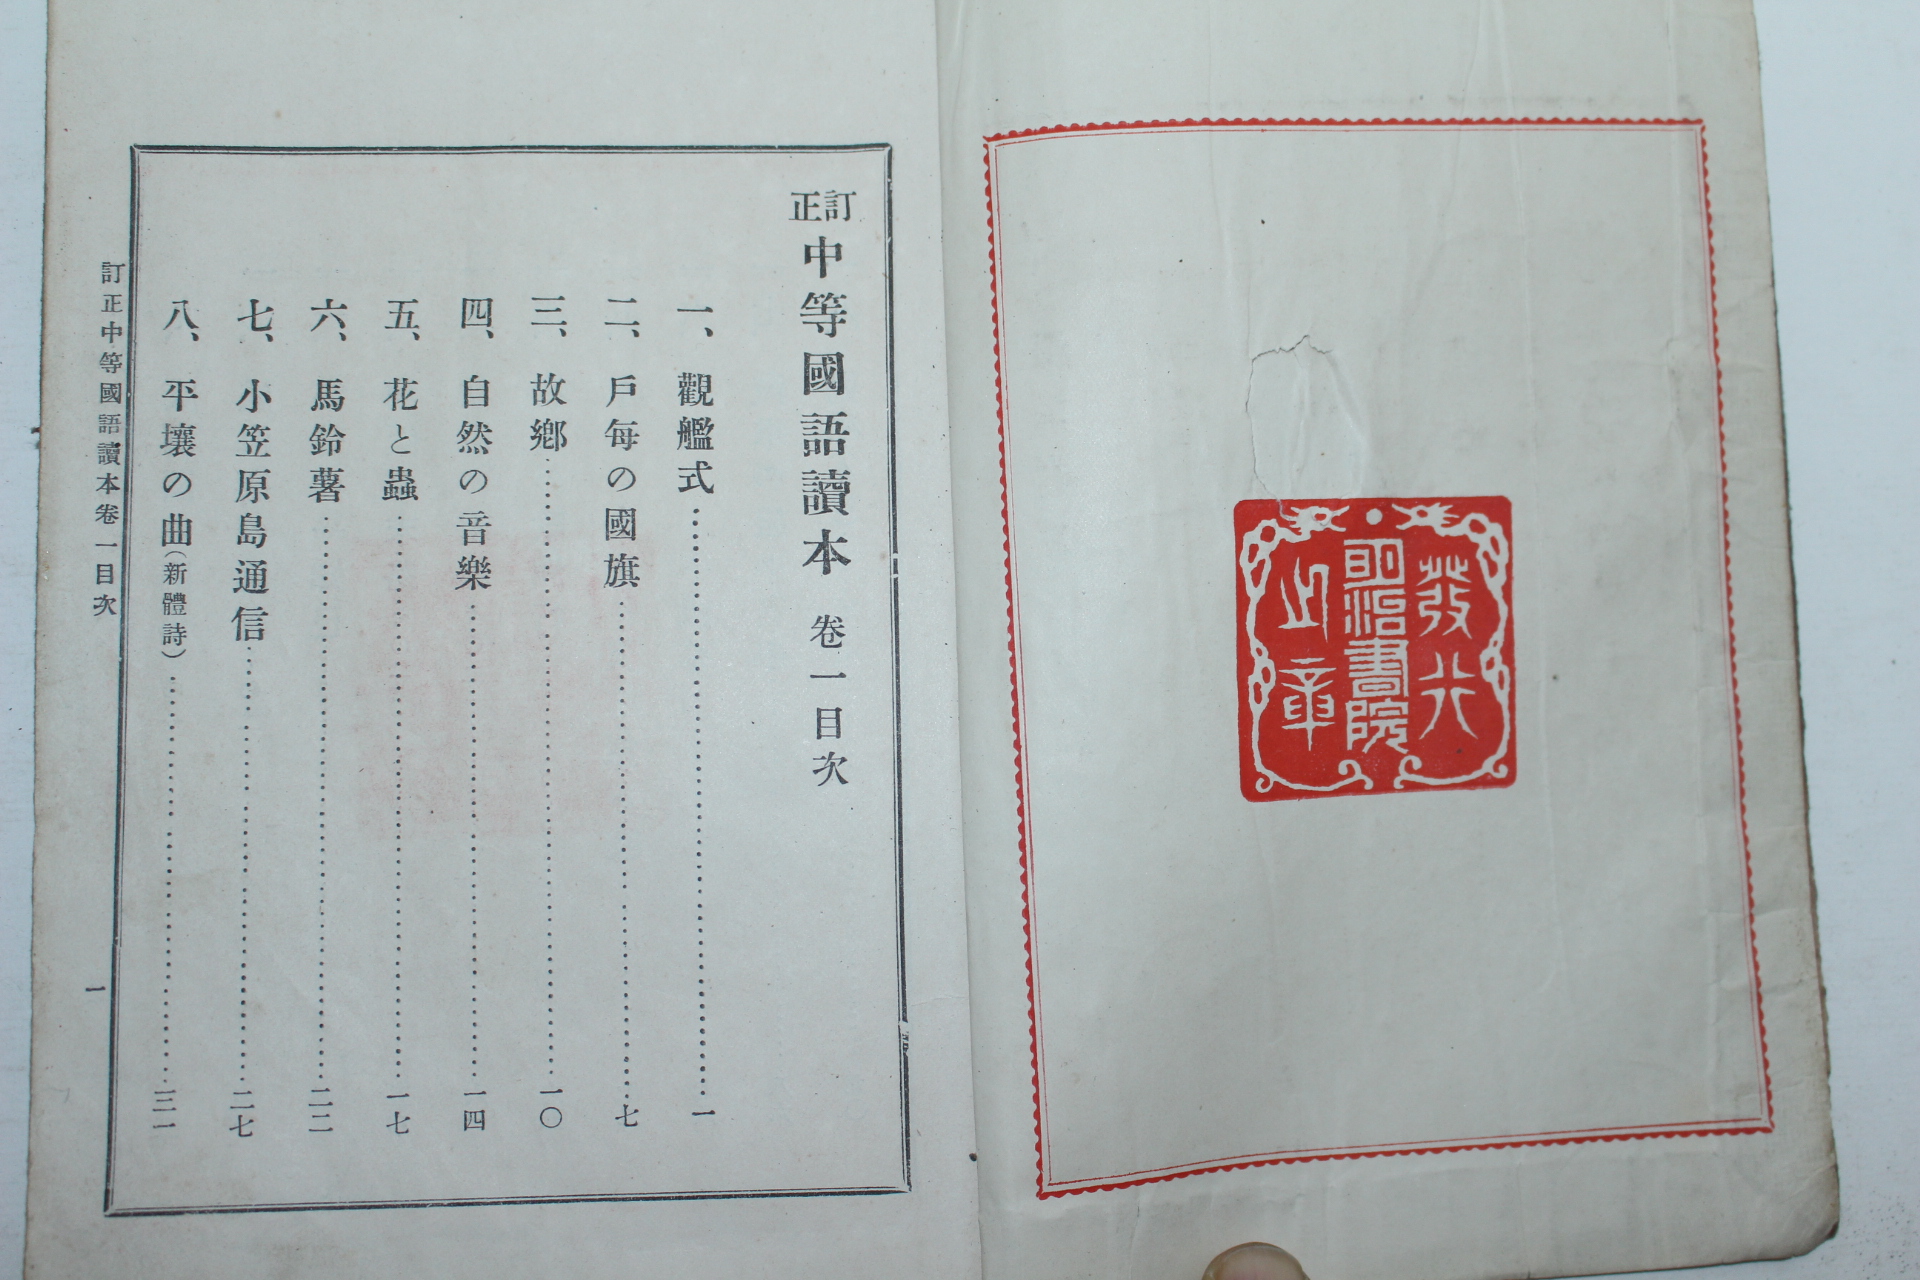 發行
明治書院
之章
訂正中等國語讀本 卷一目次
一、觀艦式……一
二、戶每の國旗……七
三、故鄉……一〇
四、自然の音樂……一四
五、花と蟲……一七
六、馬鈴薯……二二
七、小笠原島通信……二七
八、平壤の曲(新體詩)……三一
訂正中等國語讀本卷一目次
一